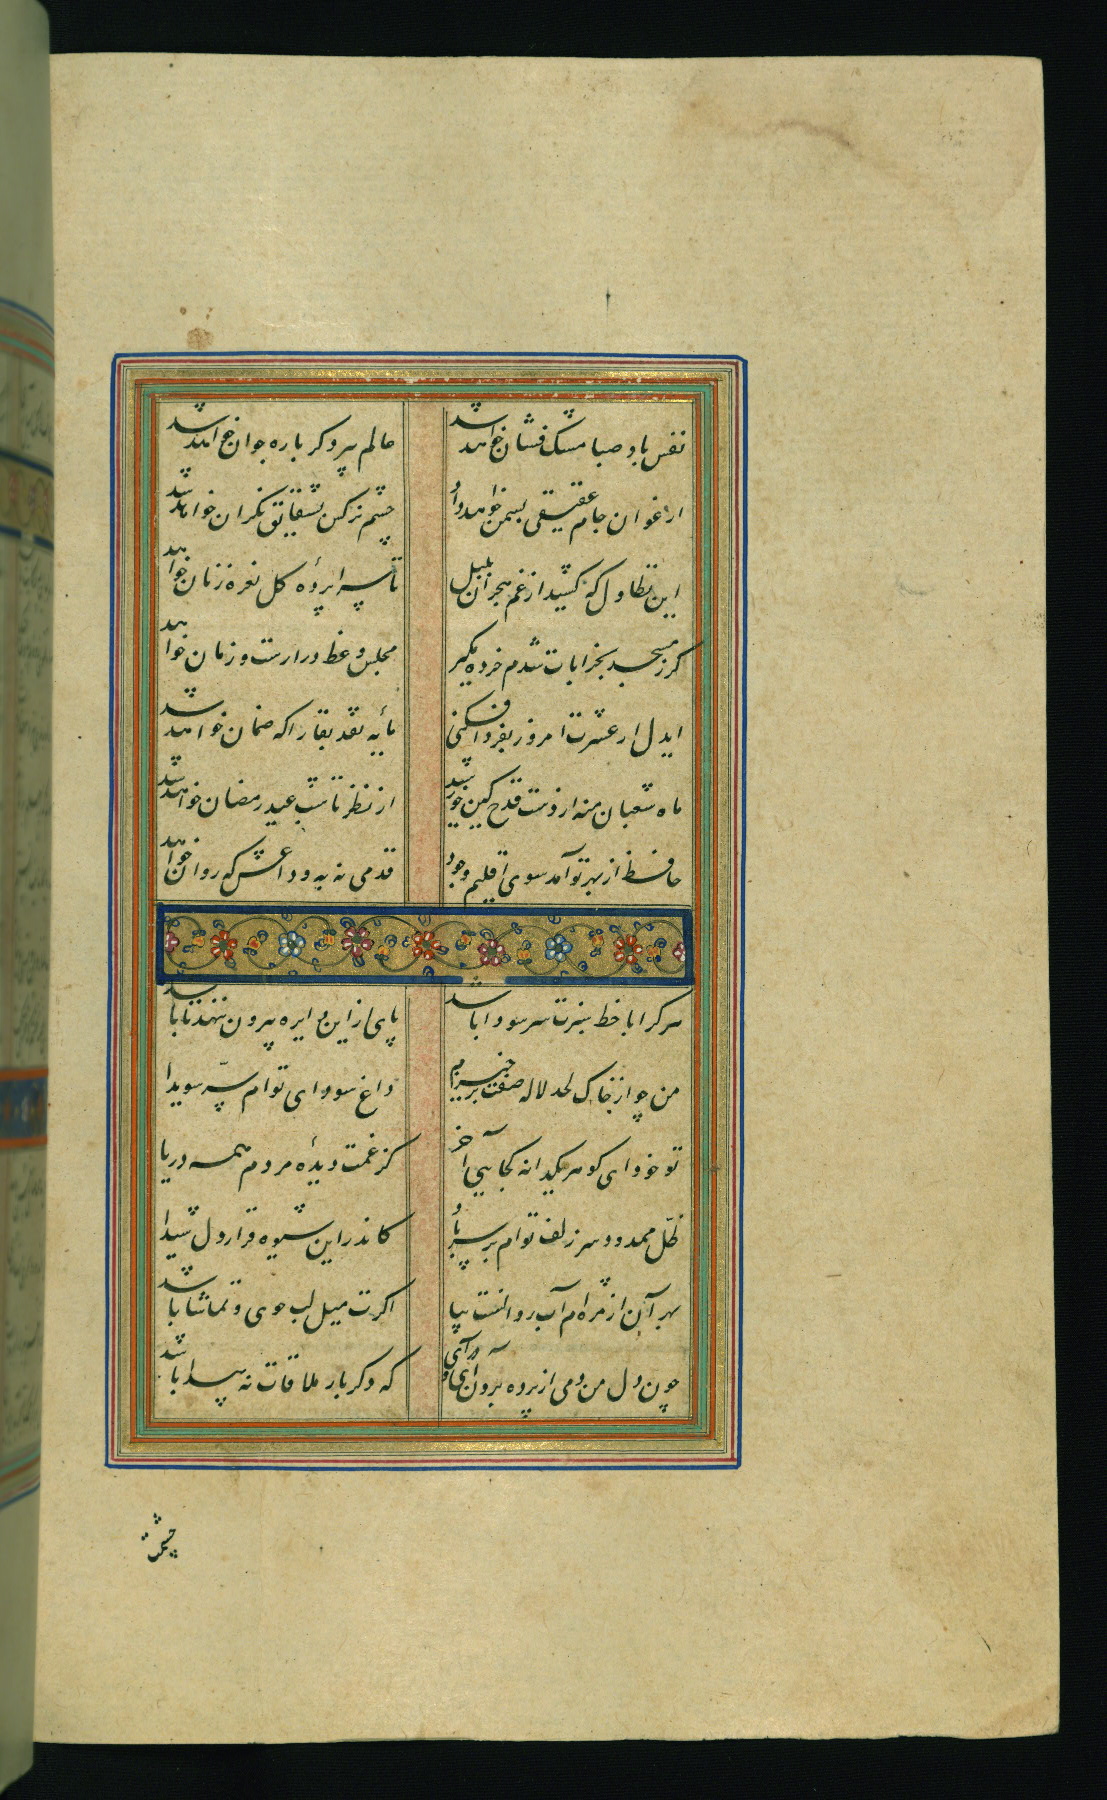 نفس باد صبا مشک فشان خواهد شد
عالم پیر دگر باره جوان خواهد شد
ارغوان جام عقیقی بسمن خواهد داد
چشم نرگس بشقایق نگران خواهد شد
این تطاول که کشید از غم هجران بلبل
تا سراپرده گل نعره زنان خواهد
گر ز مسجد بخرابات شدم خرده مگیر
مجلس وعظ درازست و زمان خواهد
ایدل ار عشرت امروز بفردا فکنی
مایه نقد بقا را که ضمان خواهد شد
ماه شعبان منه از دست قدح کین خورشید
از نظر تا شب عید رمضان خواهد شد
حافظ از بهر تو آمد سوی اقلیم وجود
قدمی نه به وداعش که روان خواهد
هر کرا با خط سبزت سر سودا باشد
پای ازین دایره بیرون ننهد تا باشد
من چو از خاک لحد لاله صفت برخیزم
داغ سودای توام سر سویدا
تو خود ای گوهر یکدانه کجایی آخر
کز غمت دیده مردم همه دریا
ظل ممدود سر زلف توام بر سر باد
کاندر این شیوه قرار دل شیدا
از مژه‌ام آب روانست بیا
اگرت میل لب جوی و تماشا باشد
چون دل من دمی از پرده برون آی و درآی
که دگر بار ملاقات نه پیدا باشد
چشمت